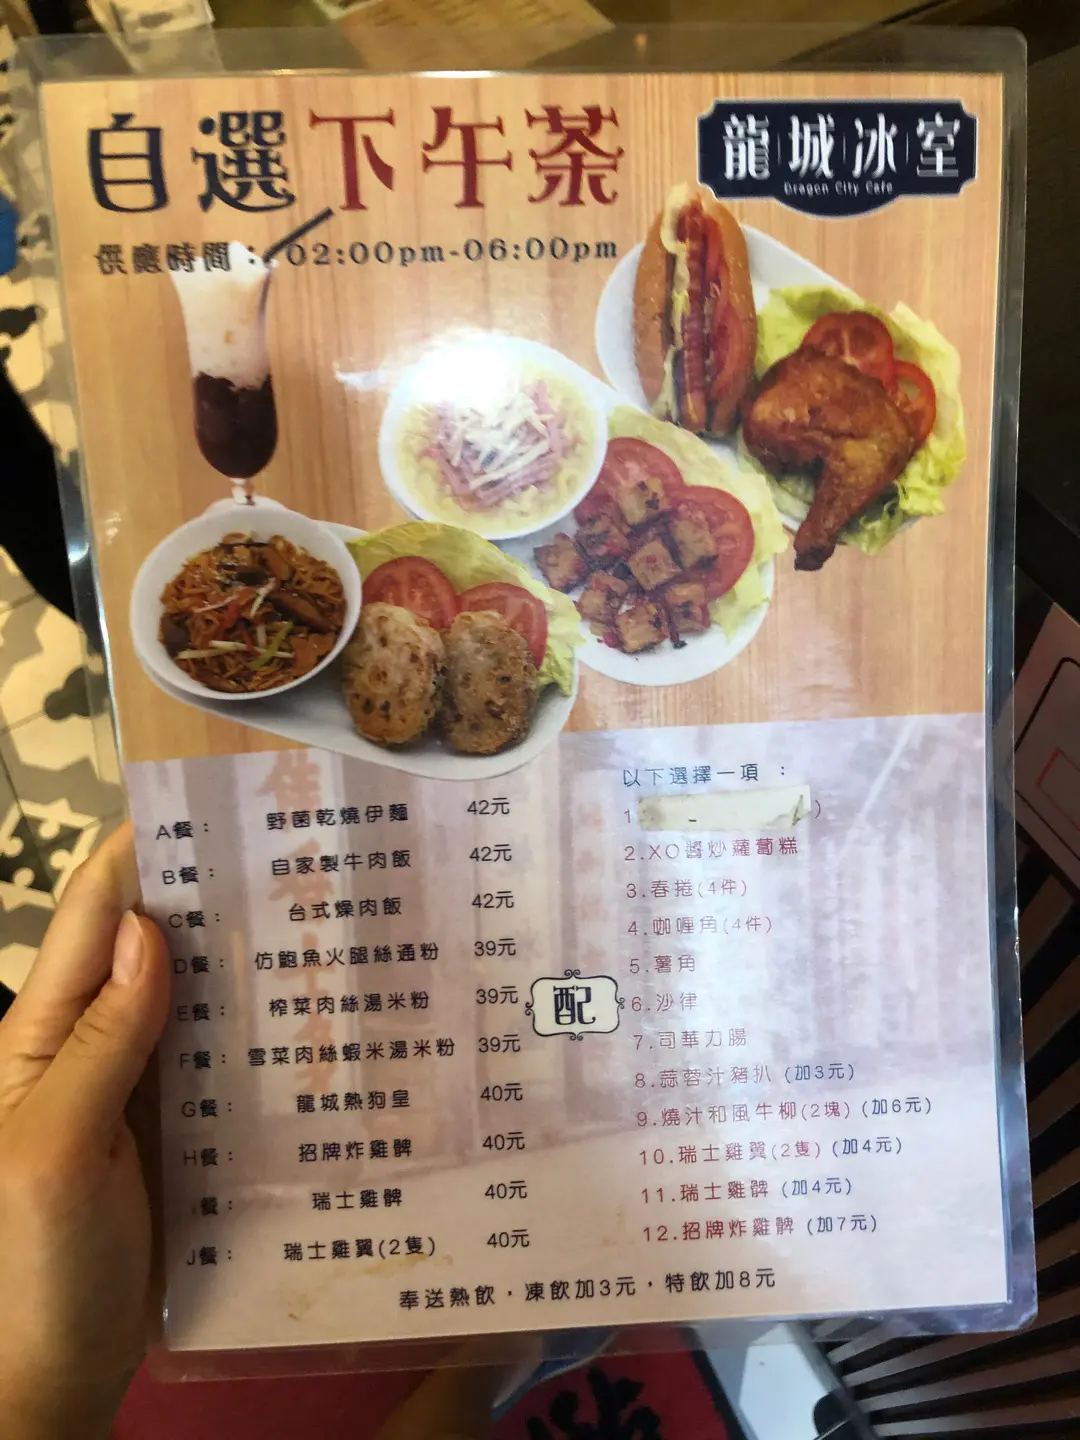 自選下午茶
龍城冰室
Dragon City Cafe
供應時間：02:00pm-06:00pm
A餐： 野菌乾燒伊麵 42元
B餐： 自家製牛肉飯 42元
C餐： 台式燥肉飯 42元
D餐： 仿鮑魚火腿絲通粉 39元
E餐： 榨菜肉絲湯米粉 39元
F餐： 雪菜肉絲蝦米湯米粉 39元
G餐： 龍城熱狗皇 40元
H餐： 招牌炸雞髀 40元
I餐： 瑞士雞髀 40元
J餐： 瑞士雞翼(2隻) 40元
配
以下選擇一項 ：
1 )
2.XO醬炒蘿蔔糕
3.春捲(4件)
4.咖喱角(4件)
5.薯角
6.沙律
7.司華力腸
8.蒜蓉汁豬扒 (加3元)
9.燒汁和風牛柳(2塊) (加6元)
10.瑞士雞翼(2隻) (加4元)
11.瑞士雞髀 (加4元)
12.招牌炸雞髀 (加7元)
奉送熱飲，凍飲加3元，特飲加8元